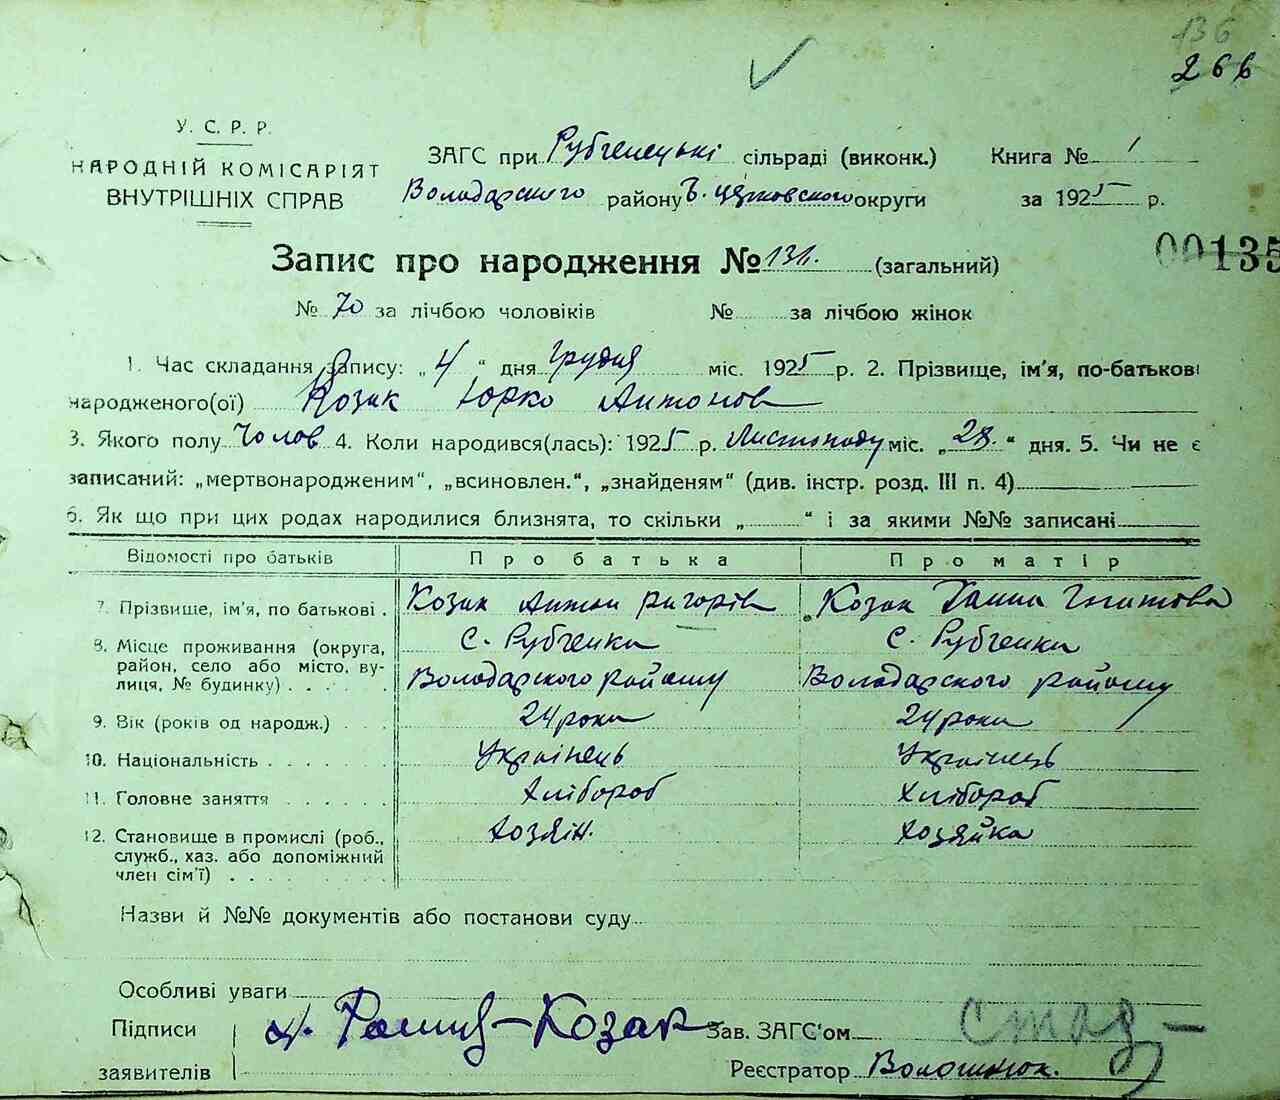 136
266
У. С. Р. Р.
НАРОДНІЙ КОМІСАРІЯТ
ВНУТРІШНІХ СПРАВ
ЗАГС при Рубченецькі сільраді (виконк.) Книга № 1
Володарского району Б. Церковского округи за 1925 р.
Запис про народження № 131. (загальний)
00135
№ 70 за лічбою чоловіків № за лічбою жінок
1. Час складання запису: „4“ дня Грудня міс. 1925 р. 2. Прізвище, ім'я, по-батькові
народженого(ої) Козак Юрко Антонов
3. Якого полу Чолов 4. Коли народився(лась): 1925 р. Листопаду міс. „28.“ дня. 5. Чи не є
записаний: „мертвонародженим“, „всиновлен.“, „знайденям“ (див. інстр. розд. III п. 4)
6. Як що при цих родах народилися близнята, то скільки „ “ і за якими №№ записані
Відомості про батьків Про батька Про матір
7. Прізвище, ім'я, по батькові . Козак Антон Григорів Козак Ганна
8. Місце проживання (округа, с. Рубченки с. Рубченки
район, село або місто, ву-
лиця, № будинку) . . . . Володарского району Володарского району
9. Вік (років од народж.) . . 24 роки 24 роки
10. Національність . . . . . . Українець Українець
11. Головне заняття . . . . . . Хлібороб Хлібороб
12. Становище в промислі (роб., Хозяін. Хозяйка
служб., хаз. або допоміжний
член сім'ї) . . . . . . . .
Назви й №№ документів або постанови суду
Особливі уваги
Підписи Козак Зав. ЗАГС'ом
заявителів Реєстратор Волошинюк.